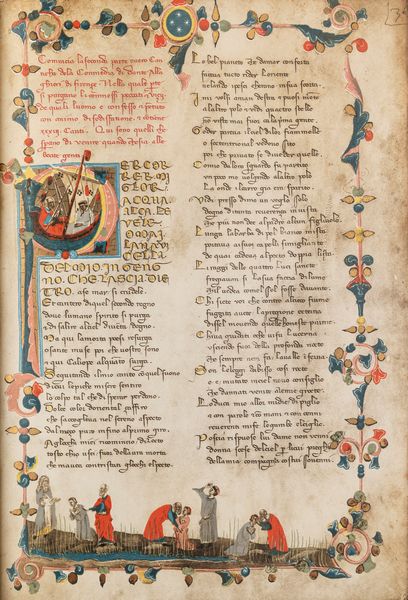 Comincia la seconda parte overo Can
tiche dela Commedia di Dante Alla
ghieri di firenze. Nella quale parte
si purgano li commessi peccati, 
de quali l uomo e confesso e pentuto
con animo di sodisfatione. e contiene
xxxiij. Canti. Qui sono quelli che
sperano di venire quando che sia alle
beate genti.
PER COR
RER MI
GLIOR
ACQUA
ALÇA LE
VELE
OMAI
LA NAVI
CELLA
DEL MIO INGEG
NO. CHE LASCIA DIE
TRO. a se mar si crudele
Et cantero di quel secondo regno
dove l umano spirito si purga
e di salire al ciel diventa degno.
Ma qui la morta poesi resurga
o sante muse poi che vostro sono
et qui Caliope alquanto surga.
Seguitando il mio canto con quel suono
di cui le piche misere sentiro
lo colpo tal che disperar perdono.
Dolce color d oriental çaffiro
che s accoglieva nel sereno aspecto
dal meço puro infino al primo giro.
Agli occhi miei ricomincio dilecto
tosto ch io usci fuor dell aura morta
che m avea contristati gli occhi e l pecto.
Lo bel pianeta che d amar conforta
faceva tucto rider l oriente
velando i pesci ch erano in sua scorta.
I mi volsi a man destra e puosi mente
al altro polo e vidi quatro stelle
non viste mai fuor ch a la prima gente.
Goder pareva il ciel di lor fiammelle
o septentrional vedovo sito
poi che privato se di veder quelle.
Com io da loro sguardo fui partito
un poco me volgendo al altro polo
la onde l carro gia era sparito.
Vidi presso di me un veglio solo
degno di tanta reverença in vista
che piu non dee al padre alcun figliuolo.
Lunga la barba e di pel bianco mista
portava a suoi capelli simigliante
de quai cadeva al pecto doppia lista.
Li raggi delle quatro luci sancte
fregiavan si la sua faccia di lume
ch i l vedea come l sol fosse davante.
Chi siete voi che contro al cieco fiume
fuggita avete la pregione eterna
diss el movendo quelle honeste piume.
Chi v a guidati o che vi fu lucerna
uscendo fuor della profonda nocte
che sempre nera fa la valle inferna.
Son le leggi d abisso cosi rocte
o e mutato in ciel novo consiglio
che dannati venite alle mie grocte.
Lo duca mio allor mi die di piglio
e con parole e con mani e con cenni
reverenti mi fe le gambe e l ciglio.
Poscia rispuose lui da me non venni
donna scese del ciel per li cui prieghi
della mia compagnia costui sovenni.